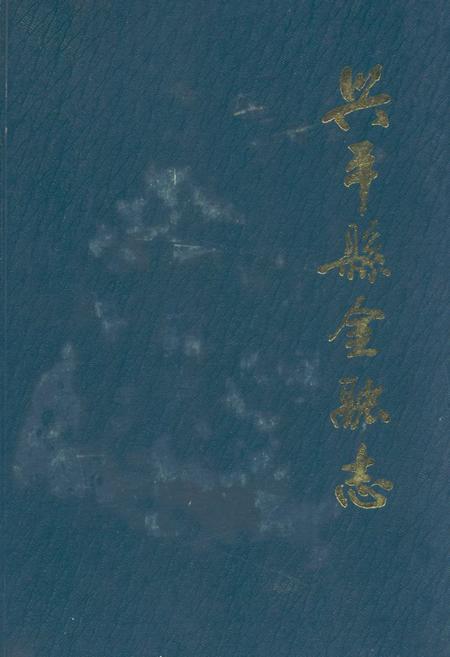 兴平縣金融志